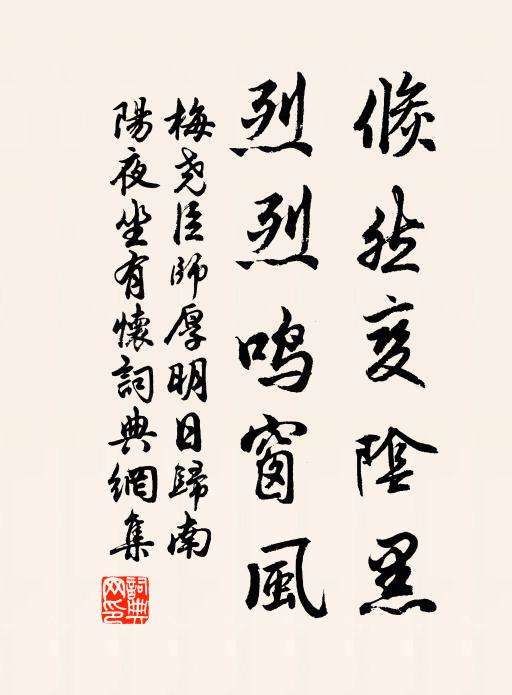 倏然变陰黑
烈烈鸣窗風
梅尧臣師厚明日歸南
陽夜坐有懷詞典網集